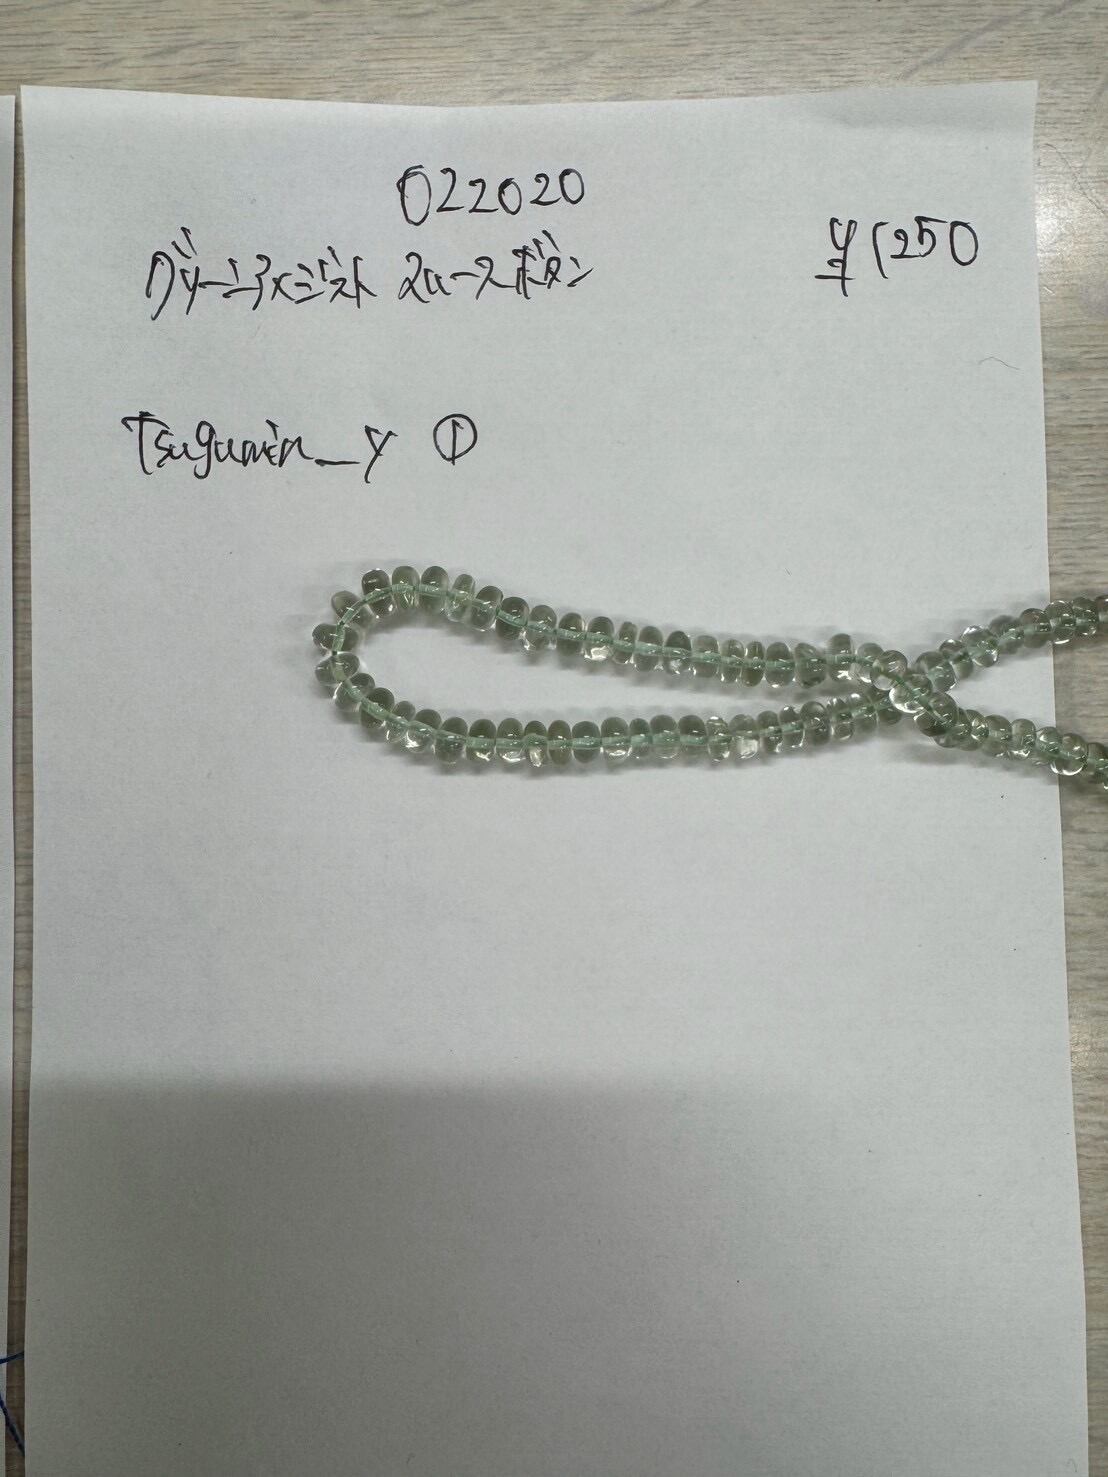 022020
グリーンアメジスト スムースボタン
¥1250
Tsugumin_y ①